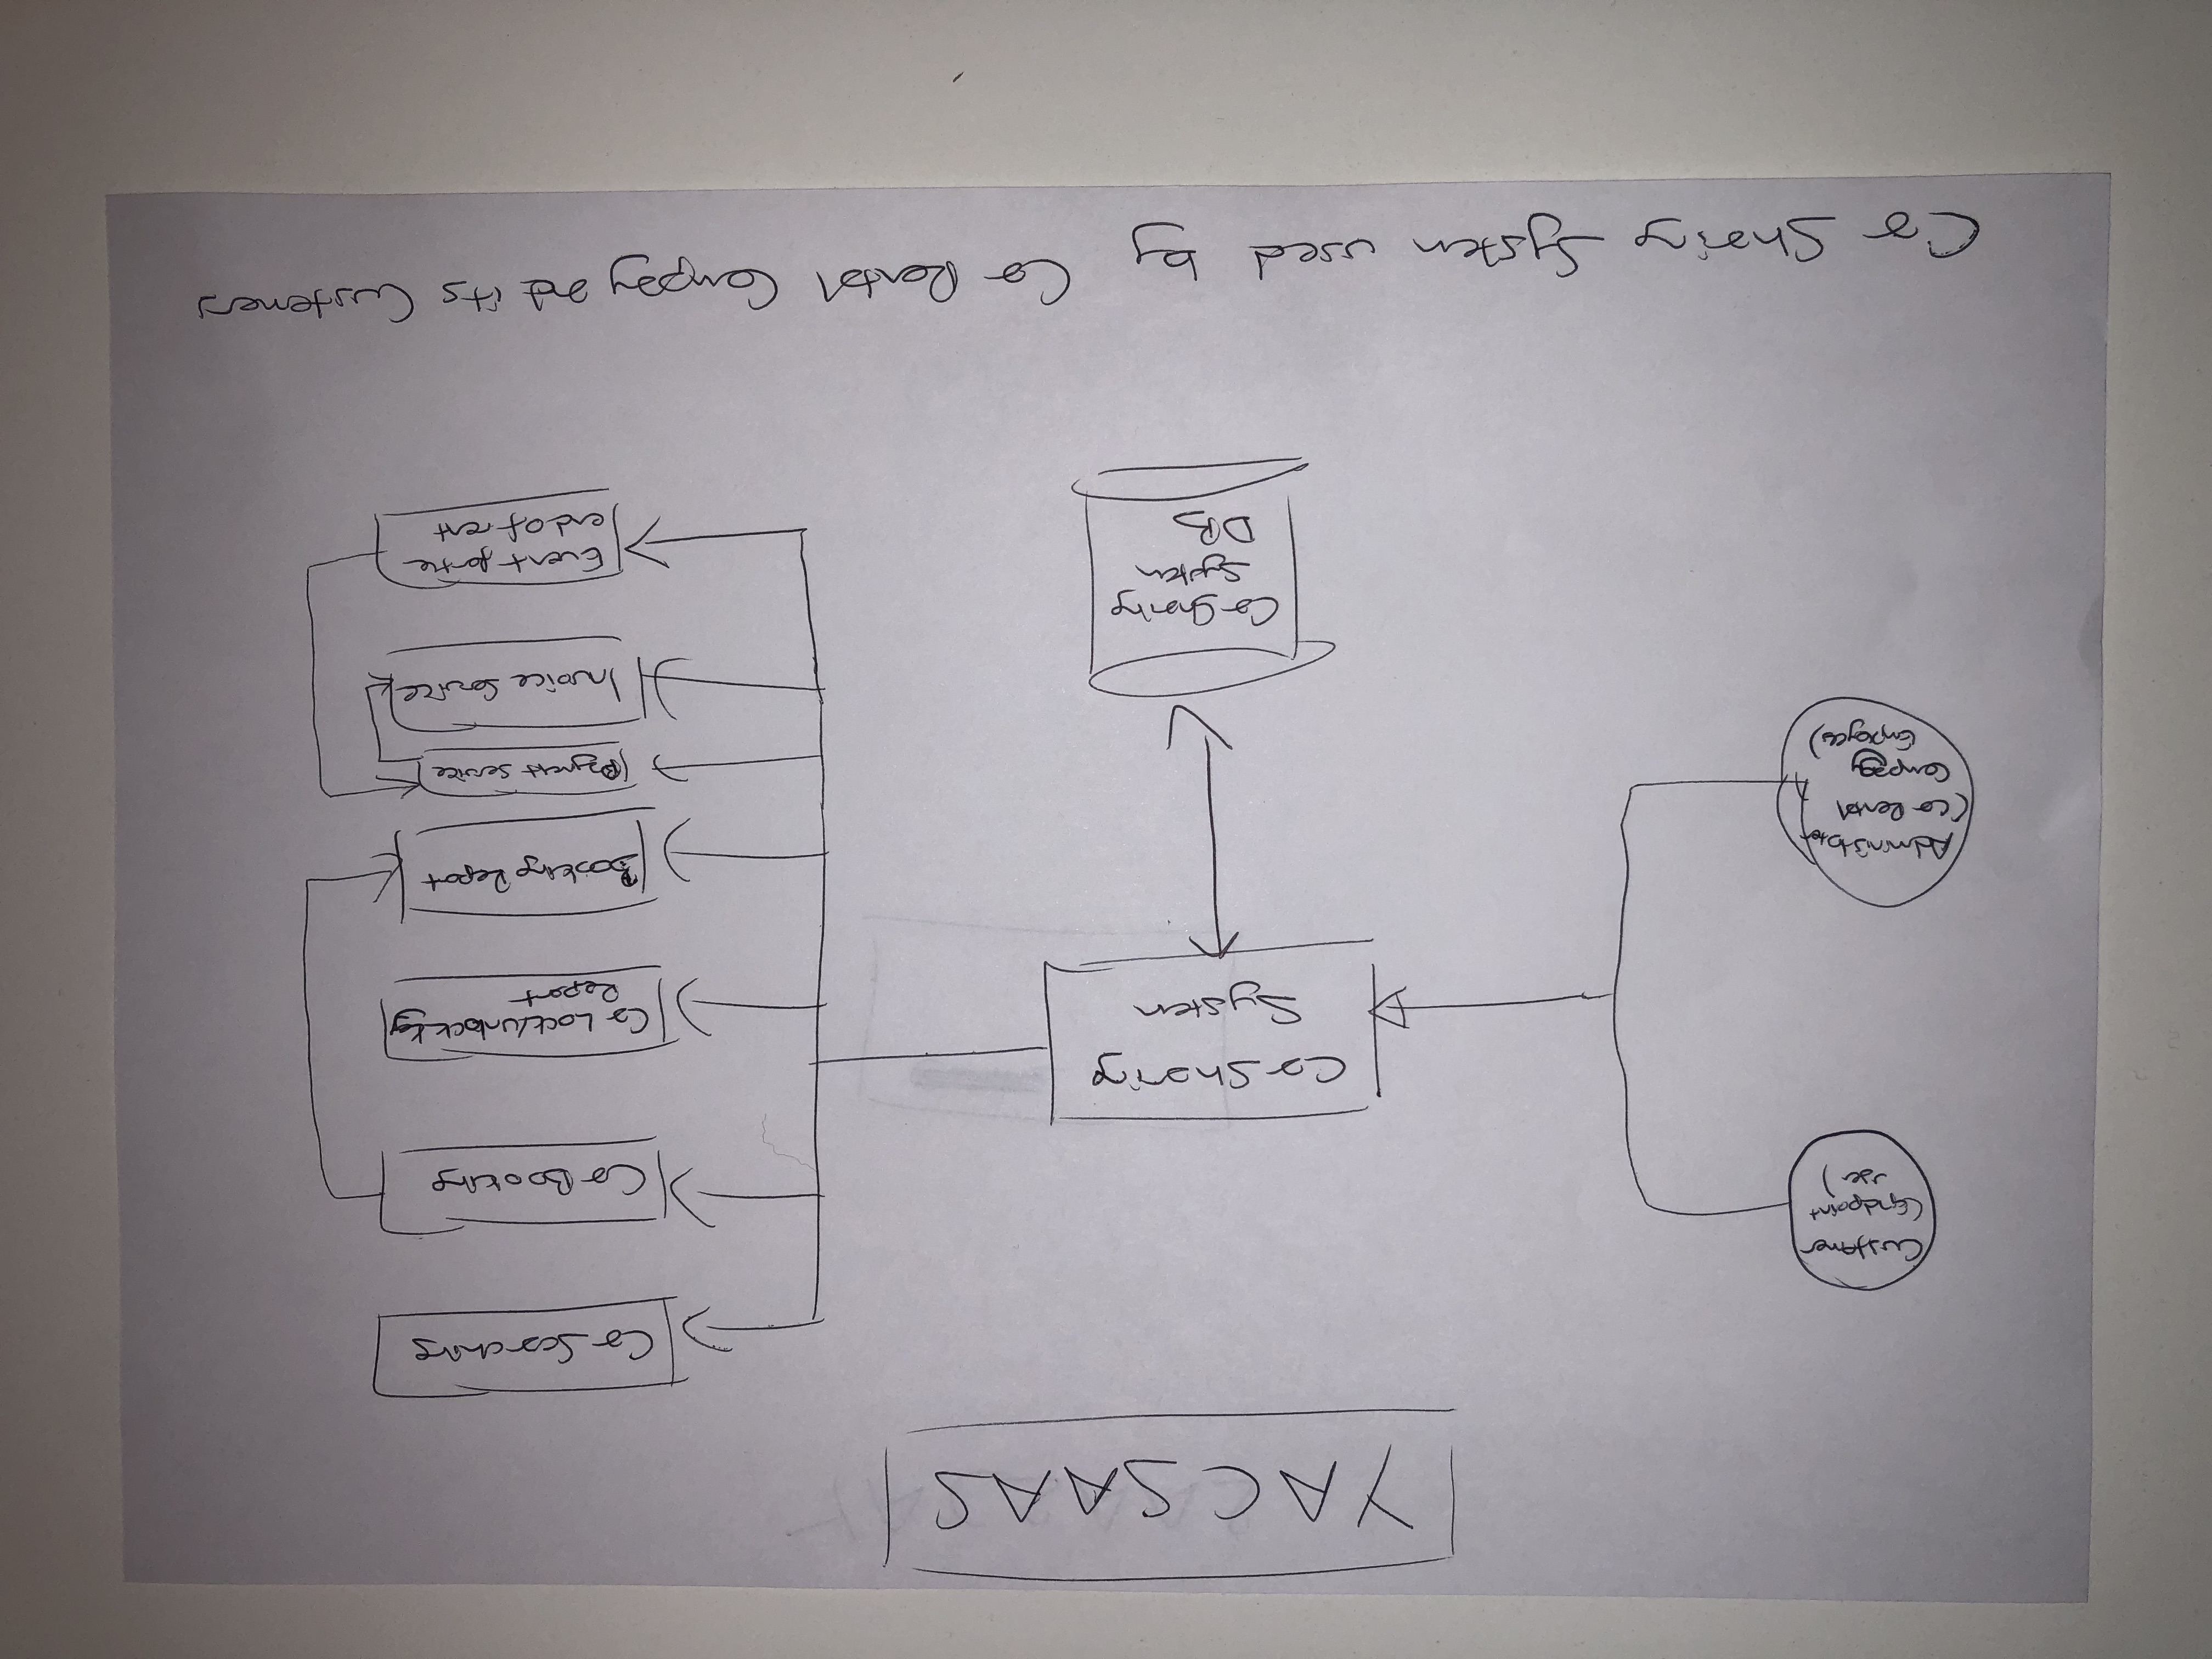 YACSAAS
Customer
(Endpoint
user)
Administrator
(Car Rental
Company
Employees)
Car Sharing
System
Car Sharing
System
DB
Car Searching
Car Booking
Car Lock/Unlock Key
Report
Booking Report
Payment Service
Invoice Service
Event for the
end of rent
Car Sharing System used by Car Rental Company and its Customers